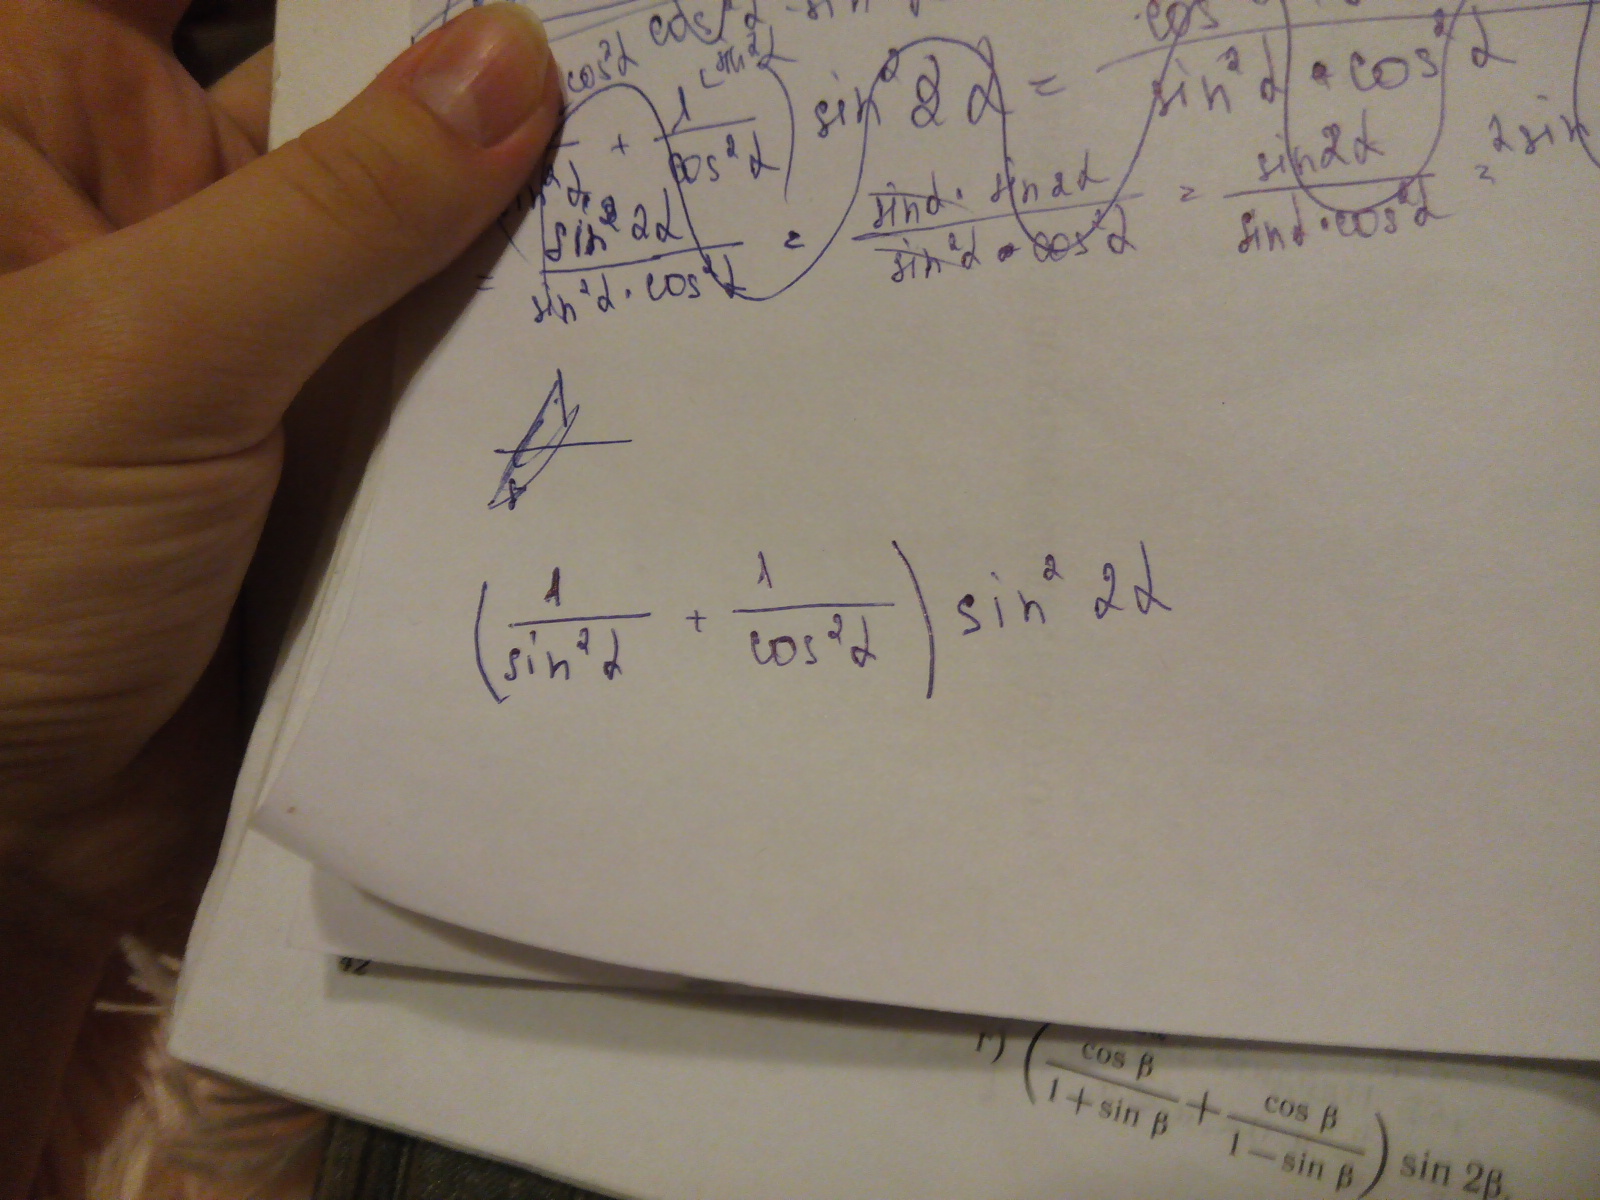 cos²α cos²α · sin
1/cos²α sin² 2α = cos / sin²α · cos²α
= sin² 2α / sin²α · cos²α = sinα · sin 2α / sin²α · cos²α = sin 2α / sinα · cos²α = 2 sin
(1/sin²α + 1/cos²α) sin² 2α
42
г) (cos β/1 + sin β + cos β/1 − sin β) sin 2β.